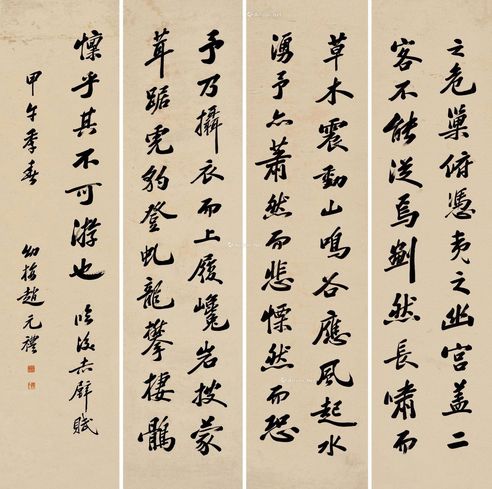 之危巢俯憑夷之幽宮蓋二
客不能從焉劃然長嘯而
草木震動山鳴谷應風起水
湧予亦蕭然而悲慄然而恐
予乃攝衣而上履巉岩披蒙
茸踞虎豹登虬龍攀棲鶻
懍乎其不可游也 臨後赤壁賦
甲午季春
幼梅趙元禮